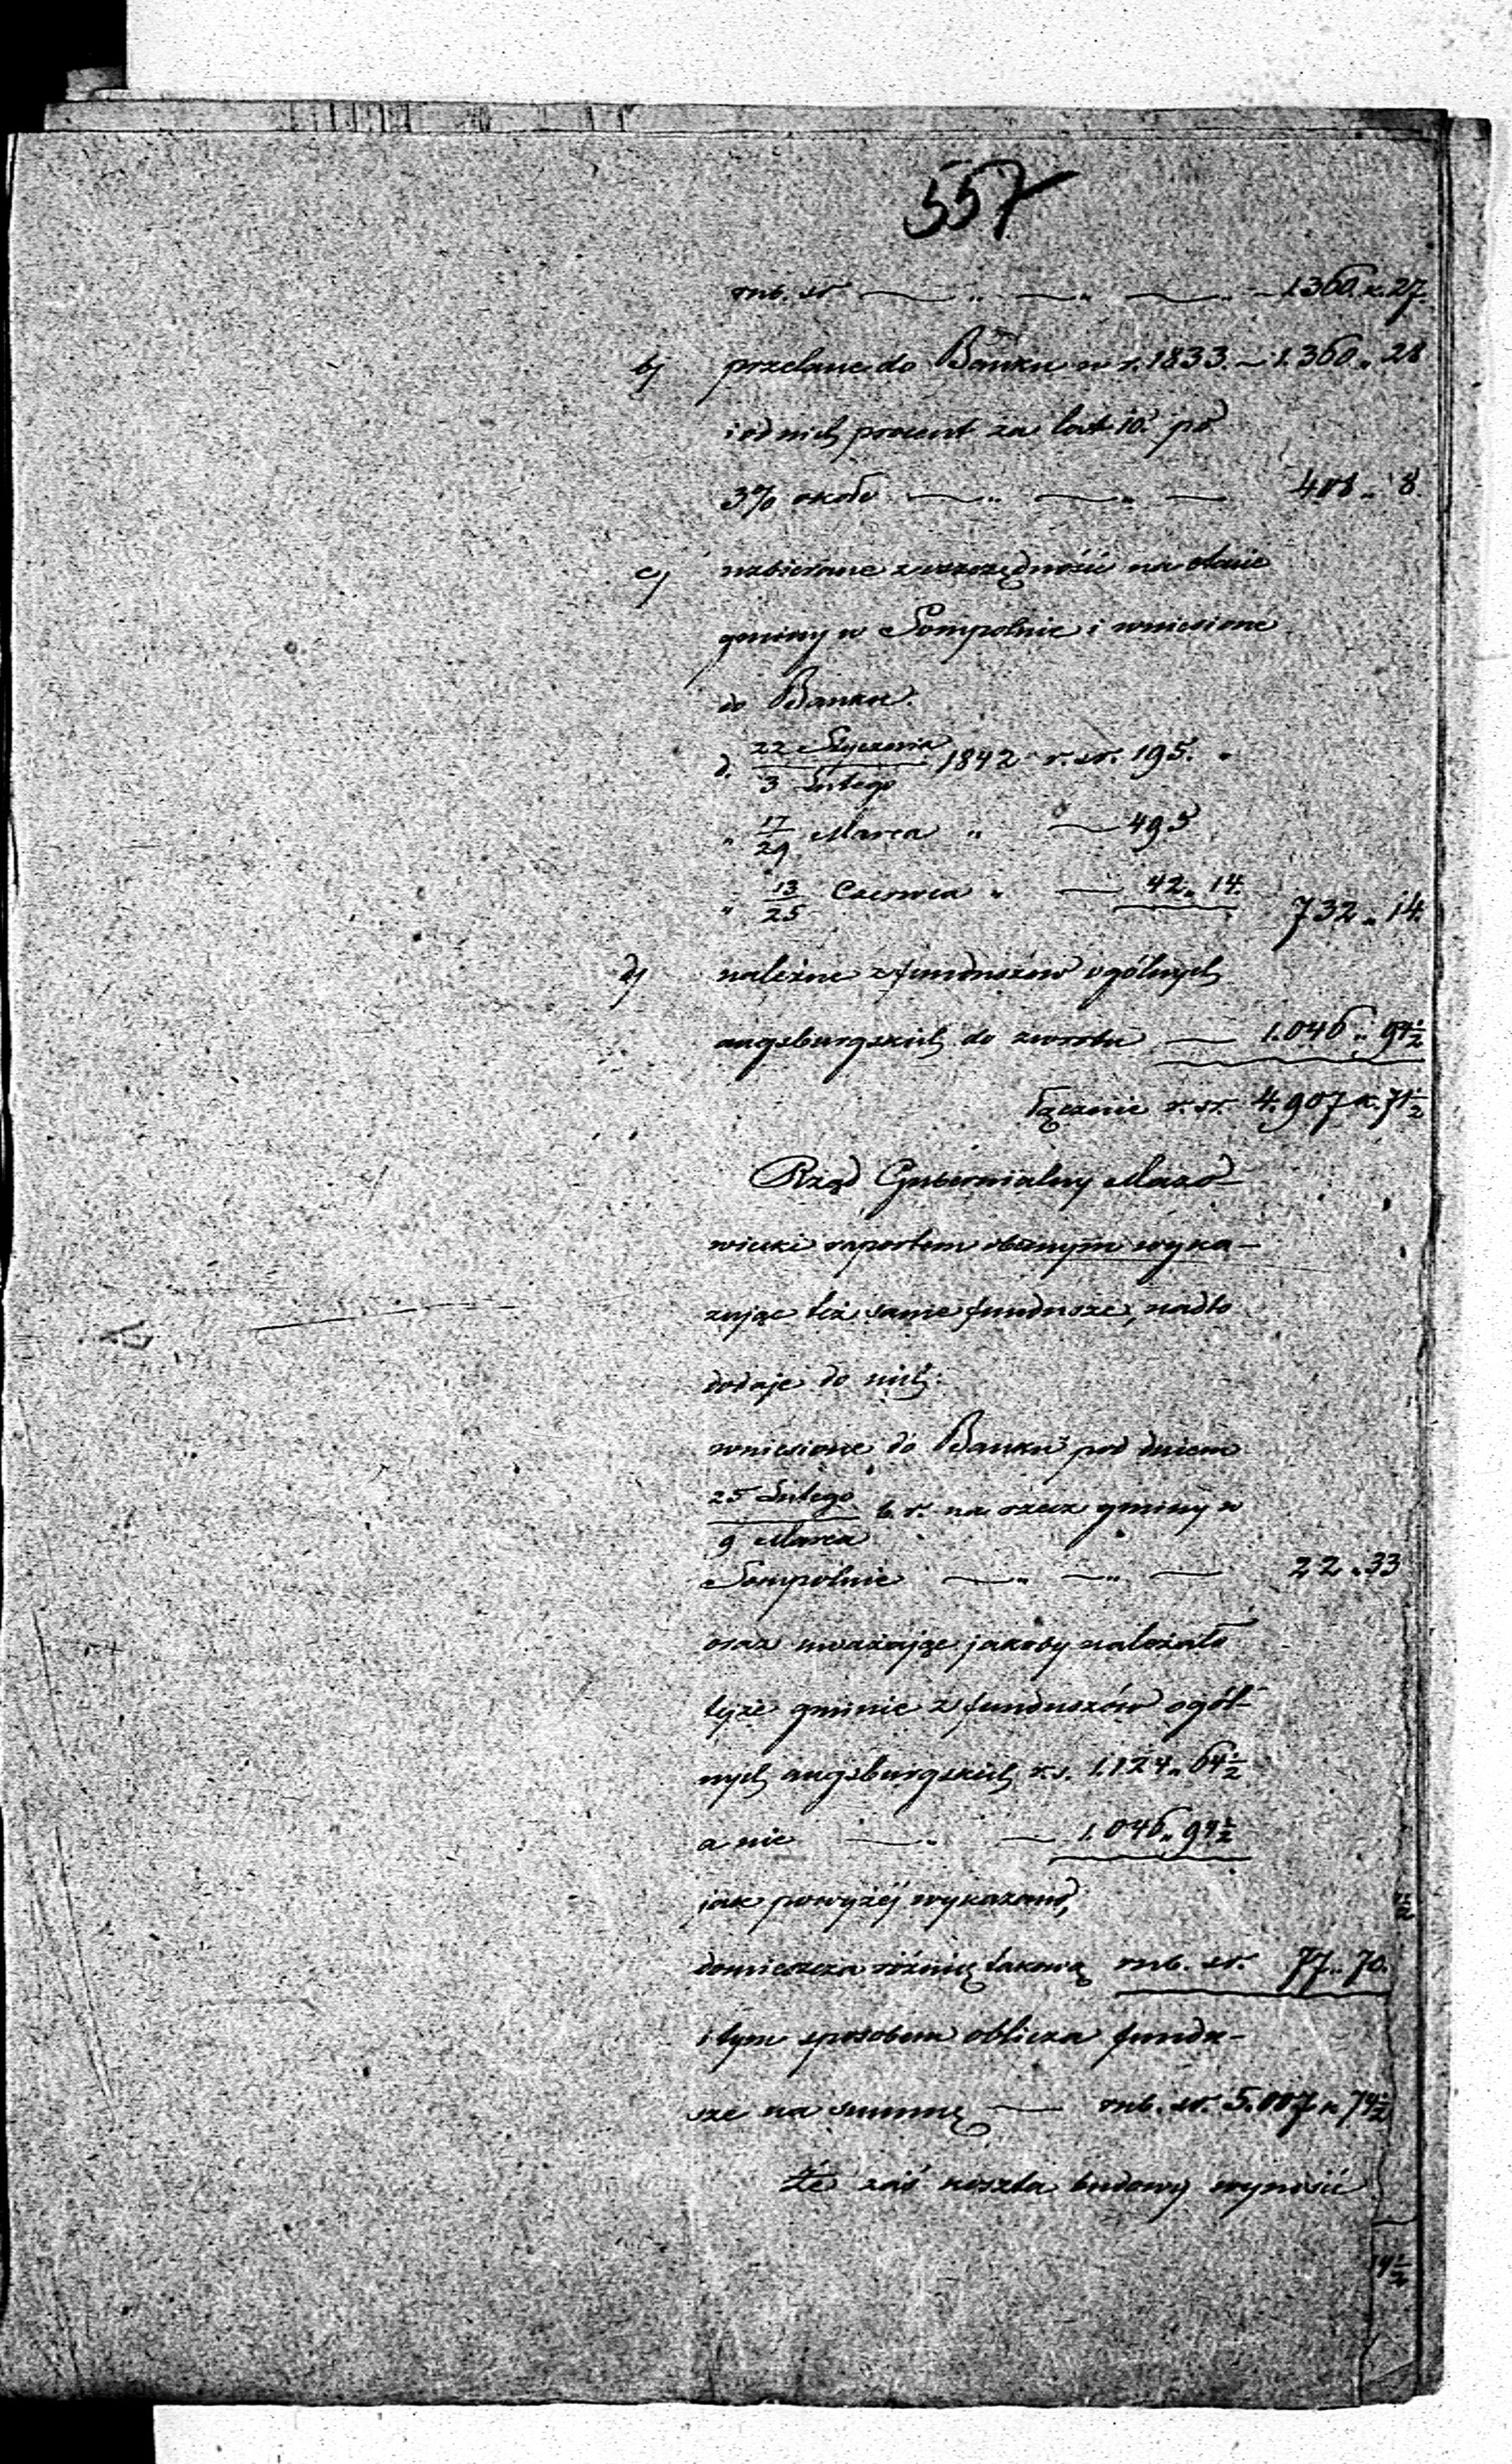 557
rub. sr. — „ — „ — „ — 1.360. k. 27.
b) przelane do Banku w r. 1833. — 1.360 „ 28
i od nich procent za lat 10. po
3% około — „ — „ — 408 „ 8.
c) uzbierane z oszczędności na etacie
gminy w Sompolnie i wniesione
do Banku.
d. 22 Stycznia / 3 Lutego 1842 r. sr. 195. „
„ 17/29 Marca „ — 495
„ 13/25 Czerwca „ — 42 „ 14. 732 „ 14.
d) należne z funduszów ogólnych
augsburgskich do zwrotu — 1.046 „ 94½
łącznie r. sr. 4.907 k. 71½
Rząd Gubernialny Mazo-
wiecki raportem obecnym wyka-
zując też same fundusze, nadto
dodaje do nich:
wniesione do Banku pod dniem
25 Lutego / 9 Marca b. r. na rzecz gminy w
Sompolnie — „ — „ — 22 „ 33
oraz uważając jakoby należało
tejże gminie z funduszów ogól-
nych augsburgskich r. s. 1.124 „ 64½
a nie — „ — 1.046 „ 94½
jak powyżej wykazano,
domieszcza różnicę takową rub. sr. 77 „ 70.
i tym sposobem oblicza fundu-
sze na summę — rub. sr. 5.007 k. 74½
Że zaś koszta budowy wynosić